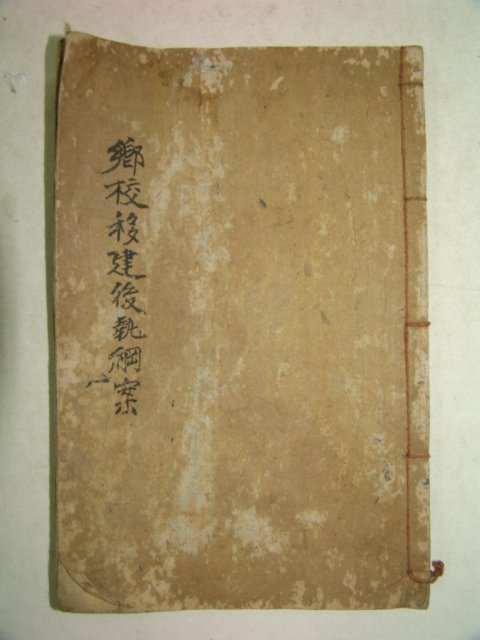 鄕校移建後執綱案